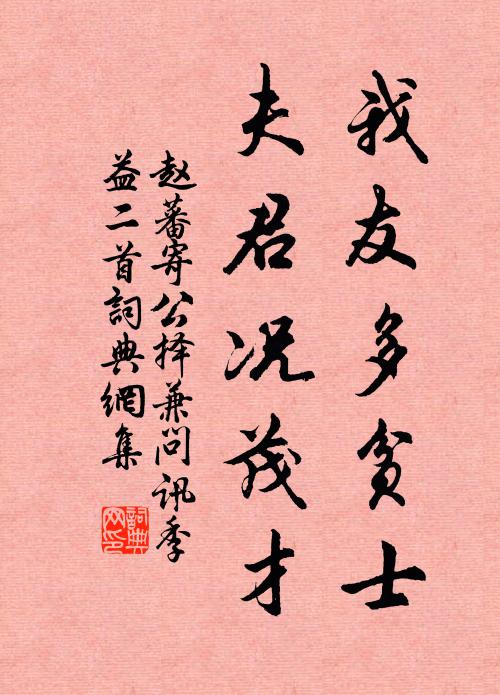 我友多贫士
夫君况茂才
赵蕃寄公择兼问讯季
益二首詞典網集
詞典
网印